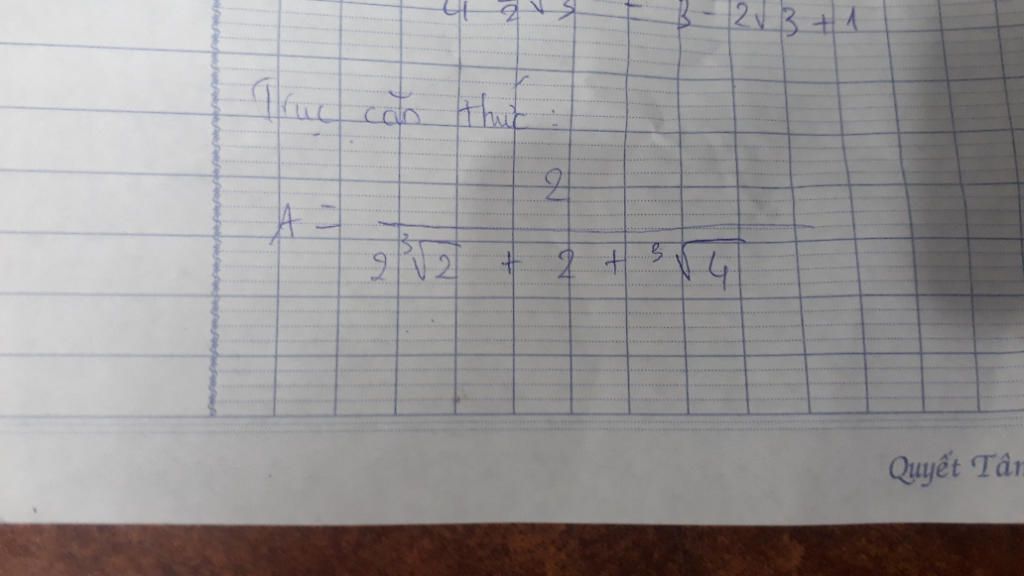 3 - 2√3 + 1
Trục căn thức :
A = 2 / (2∛2 + 2 + ∛4)
Quyết Tâm